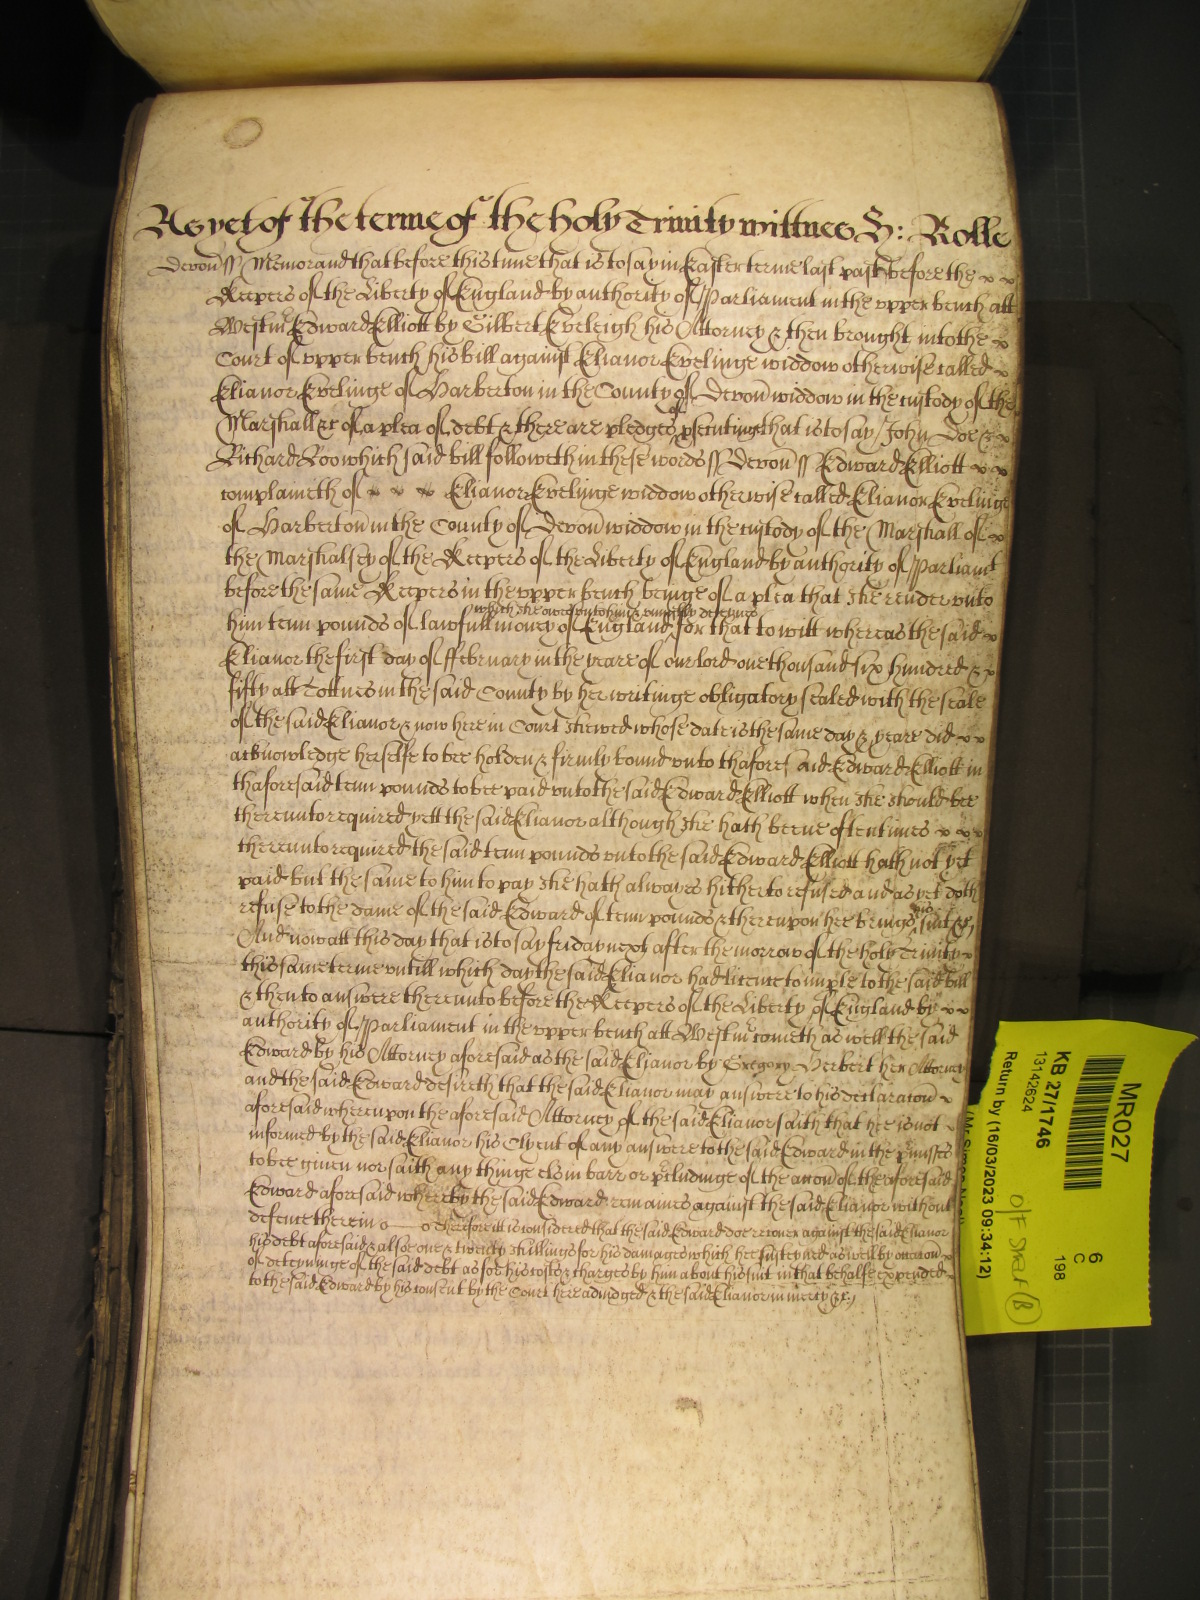 As yet of the terme of the holy Trinity wittnes H: Rolle
Devon ss Memorand that before this time that is to say in Easter terme last past before the
Keepers of the Liberty of England by authority of Parliament in the upper bench att
Westm Edward Elliott by Gilbert Eveleigh his Attorney & then brought into the
Court of upper bench his bill against Elianor Evelinge widdow otherwise called
Elianor Evelinge of Harberton in the County of Devon widdow in the custody of the
Marshall &c of a plea of debt & there are pledges of psecutinge that is to say John Doe &
Richard Roo which said bill followeth in these words ss Devon ss Edward Elliott
complaineth of Elianor Evelinge widdow otherwise called Elianor Evelinge
of Harberton in the County of Devon widdow in the custody of the Marshall of
the Marshalsey of the Keepers of the Liberty of England by authority of Parliamt
before the same Keepers in the upper bench beinge of a plea that she render unto
which she owes unto him & uniustly deteines
him tenn pounds of lawfull money of England for that to witt whereas the said
Elianor the first day of ffebruary in the yeare of our lord one thousand six hundred &
fifty att Tottnes in the said County by her writinge obligatory sealed with the seale
of the said Elianor & now here in Court shewed whose date is the same day & yeare did
acknowledge herselfe to bee holden & firmly bound unto thaforesaid Edward Elliott in
thaforesaid tenn pounds to bee paid unto the said Edward Elliott when she should bee
thereunto required yett the said Elianor although she hath beene oftentimes
thereunto required the said tenn pounds unto the said Edward Elliott hath not yet
paid but the same to him to pay she hath alwayes hitherto refused and as yet doth
refuse to the dam͠e of the said Edward of tenn pounds & thereupon hee brings his suit &c
And now att this day that is to say friday next after the morrow of the holy Trinity
this same terme untill which day the said Elianor had licence to imple to the said bill
& then to answere thereunto before the Keepers of the Liberty of England by
authority of Parliament in the upper bench att Westm cometh as well the said
Edward by his Attorney aforesaid as the said Elianor by Gregory Herbert her Attorney
and the said Edward desireth that the said Elianor may answere to his declaracon
aforesaid whereupon the aforesaid Attorney of the said Elianor saith that hee is not
informed by the said Elianor his Clyent of any answere to the said Edward in the pmisses
to bee given nor saith any thinge els in barr or pcludinge of the accon of the aforesaid
Edward aforesaid whereby the said Edward remaines against the said Elianor without
defence therein o—o Therefore it is considered that the said Edward doe recover against the said Elianor
his debt aforesaid & alsoe one & twenty shillings for his damages which hee susteyned as well by occacon
of deteyninge of the said debt as for his costs & charges by him about his suit in that behalfe expended
to the said Edward by his consent by the Court here adiudged & the said Elianor in mercy &c
MR027
6
C
198
KB 27/1746
13142624
Return by (16/03/2023 09:34:12)